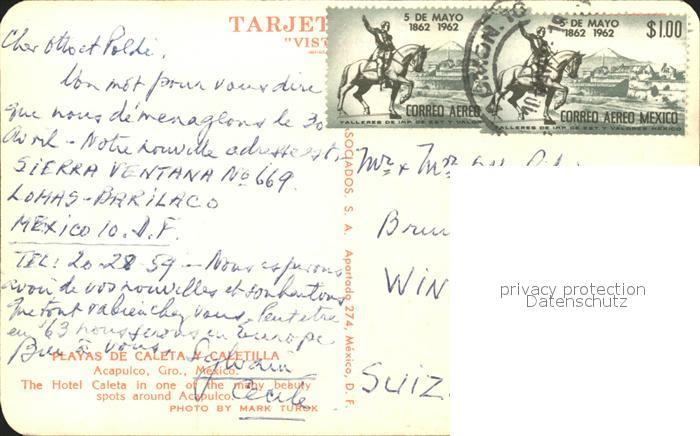 TARJET
"VIST
5 DE MAYO
1862 1962
CORREO AEREO
TALLERES DE IMP. DE EST. Y VALOR
5 DE MAYO
1862 1962
$1.00
CORREO AEREO MEXICO
TALLERES DE IMP. DE EST. Y VALORES MEXICO
Cher Otto et Poldi,
Un mot pour vous dire
que nous déménageons le 30
Avril - Notre nouvelle adresse est:
SIERRA VENTANA No 669
LOMAS-BARILACO
MEXICO 10. D.F.
TEL: 20-28 59 - Nous espérons
avoir de vos nouvelles et souhaitons
que tout va bien chez vous. Peut être
en '63 nous serons en Europe
Bien à vous Sylvain
Cécile
SOCIADOS. S. A. Apartado 274, México, D. F.
Mr & Mrs
WIN
SUIZ
privacy protection
Datenschutz
PLAYAS DE CALETA Y CALETILLA
Acapulco, Gro., México.
The Hotel Caleta in one of the many beauty
spots around Acapulco.
PHOTO BY MARK TUROK